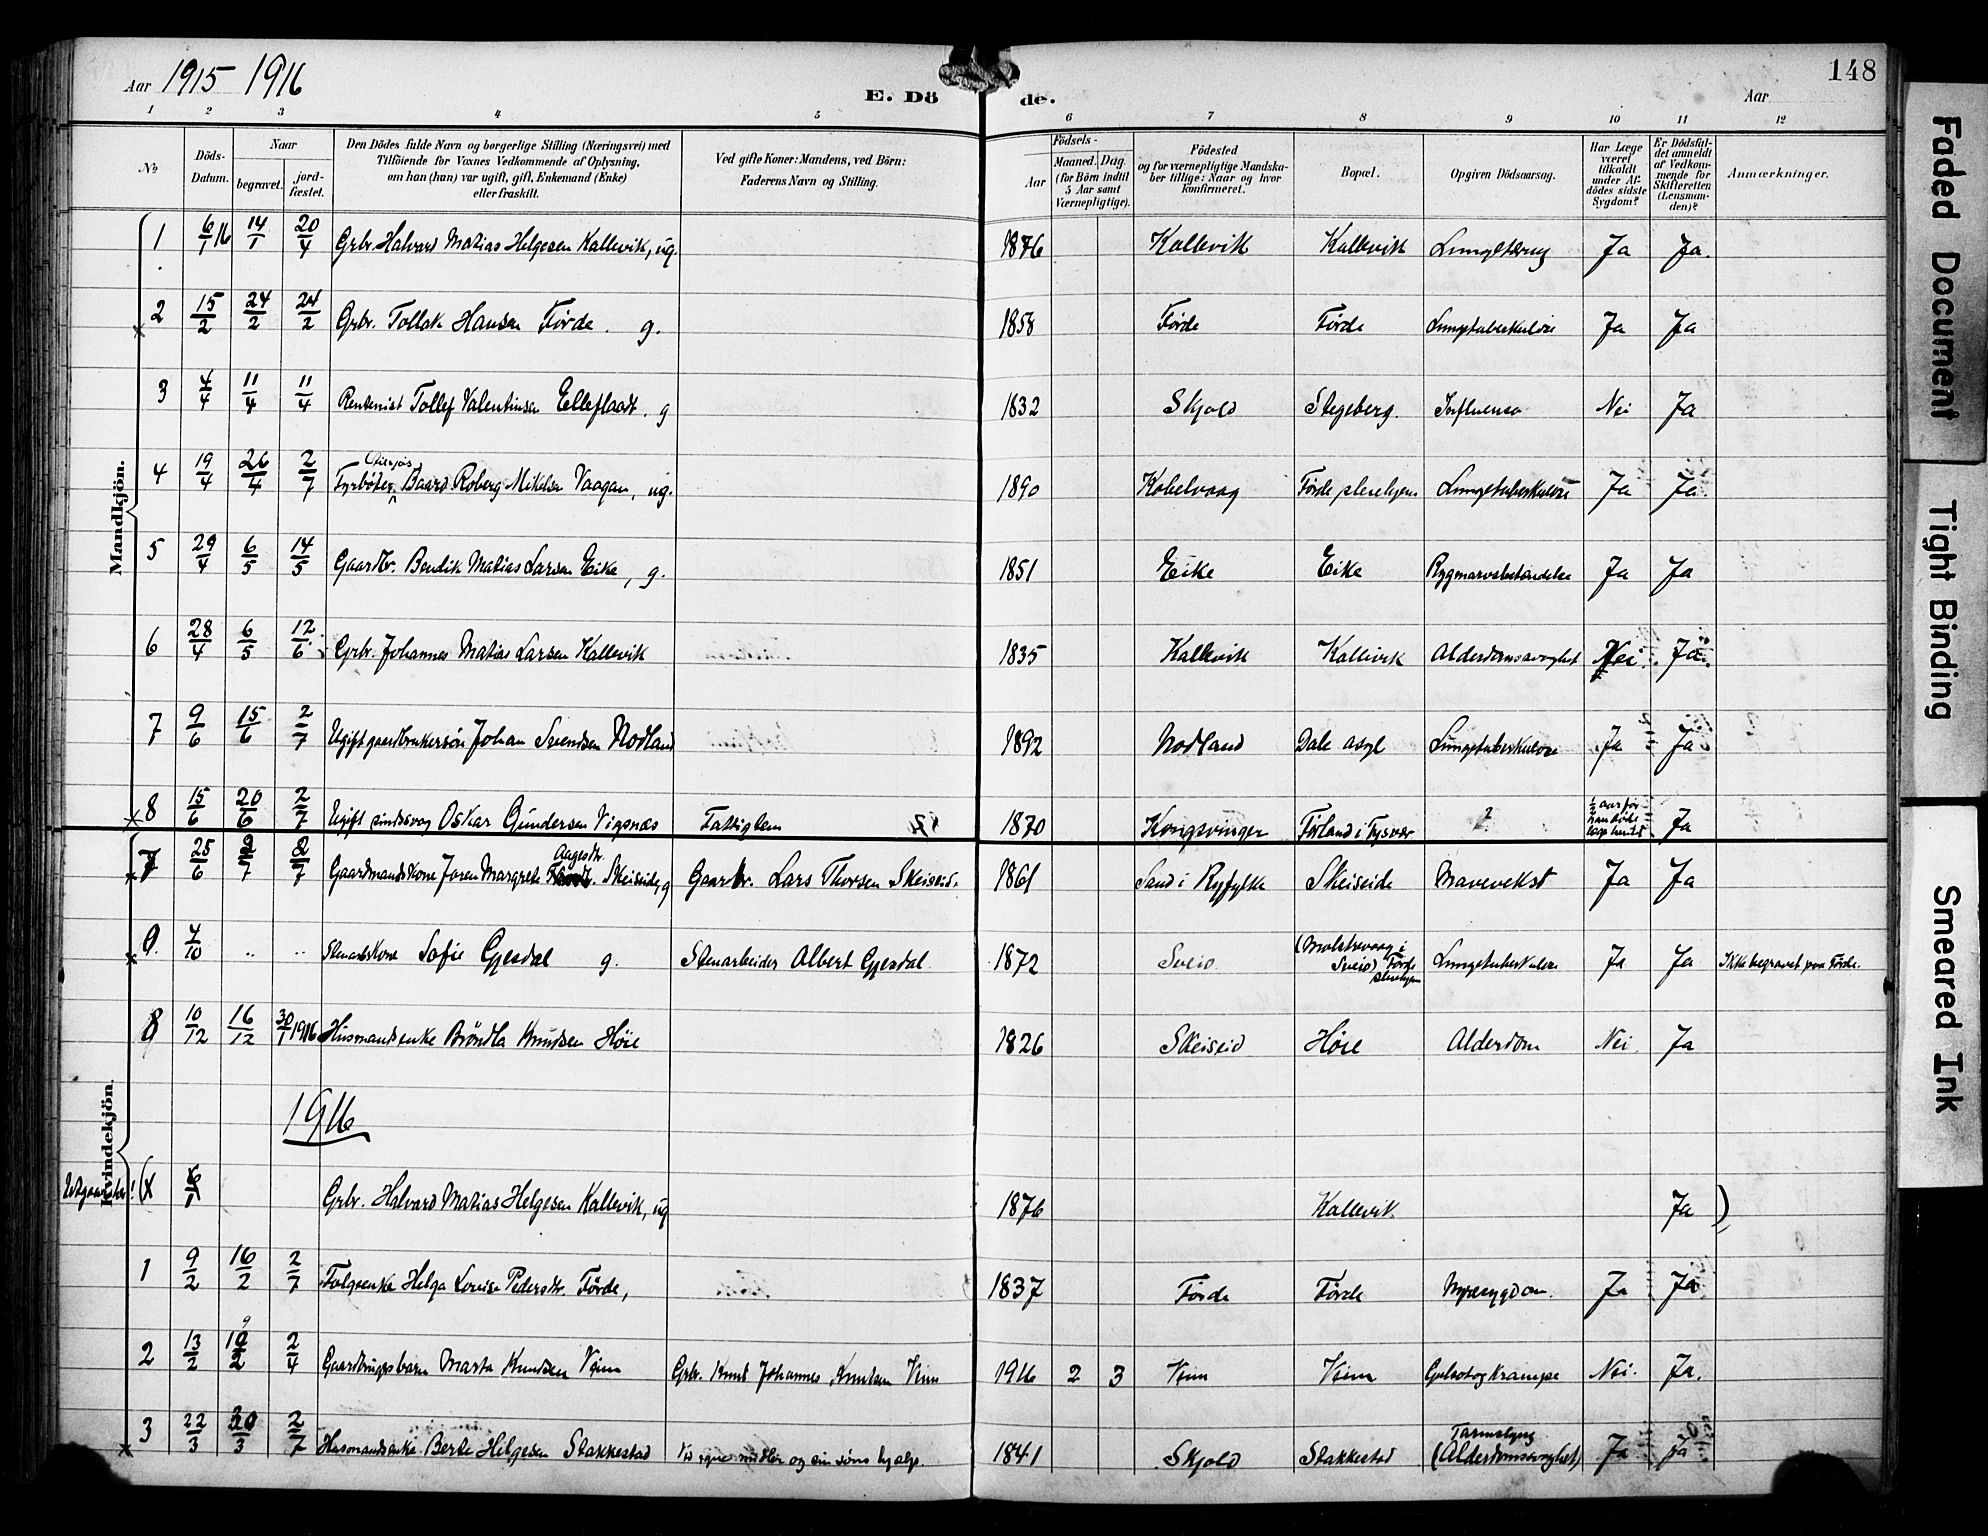 Aar 1915 1916
E. Dö de.
Aar
148
1 2 3 4 5 6 7 8 9 10 11 12
No
Döds-Datum.
Naar
begravet.
jord-fæstet.
Den Dödes fulde Navn og borgerlige Stilling (Næringsvei) med
Tilföiende for Voxnes Vedkommende af Oplysning,
om han (hun) var ugift, gift, Enkemand (Enke)
eller fraskilt.
Ved gifte Koner: Mandens, ved Börn:
Faderens Navn og Stilling.
Födsels-
Aar
Maaned. Dag.
(for Börn indtil
5 Aar samt
Værnepligtige).
Födested
og for værnepligtige Mandska-
ber tillige: Naar og hvor
konfirmeret.
Bopæl.
Opgiven Dödsaarsag.
Har Læge
været
tilkaldt
under Af-
dödes sidste
Sygdom?
Er Dödsfal-
det anmeldt
af Vedkom-
mende for
Skifteretten
(Lensman-
den)?
Anmærkninger.
Mandkjön.
1 6/1 16 14/1 20/4 Grbr. Halvard Matias Helgesen Kallevik, ug. 1876 Kallevik Kallevik Ja Ja.
2 15/2 24/2 24/2 Grbr. Tollak Hansen Førde. g. 1858 Førde Førde Lungetuberkulose Ja Ja
3 4/4 11/4 11/4 Rentenist Tollef Valentinsen g 1832 Skjold Stegeberg. Influensa Nei Ja
4 19/4 26/4 2/7 Fyrbøter, Baard Roberg Mikalsen Vaagan, ug. 1890 Kabelvaag Førde pleiehjem Lungetuberkulose Ja Ja.
5 29/4 6/5 14/5 Gaardbr. Bendik Matias Larsen Eike, g. 1851 Eike Eike Rygmarvsbetændelse Ja Ja
6 28/4 6/5 12/6 Grbr. Johannes Matias Larsen Kallevik 1835 Kallevik Kallevik Alderdomssvaghet Nei. Ja.
7 9/6 15/6 2/7 Ugift gaardbrukersøn Johan Svendsen Nodland 1892 Nodland Dale asyl Lungetuberkulose Ja Ja
8 15/6 20/6 2/7 Ugift sindssvag Oskar Gundersen Vigsnæs Fattiglem 1870 Kongsvinger Førland i Tysvær ? 1/2 aar før han døde Ja
Kvindekjön.
7 25/6 2/7 2/7 Gaardmandskone Joren Margrete Aagesdtr. Skeiseid, g Gaarbr. Lars Thorsen Skeiseid. 1861 Sand i Ryfylke Skeiseide Mavevekst Ja Ja
4/10 .. .. Sofie Gjesdal g. Stenarbeider Albert Gjesdal 1872 Sveio (Molstrevaag i Sveio) Førde pleiehjem Lungetuberkulose Ja Ja Ikke begravet paa Førde.
8 10/12 16/12 30/1 1916 Husmandsenke Brøndla Knudsen Høie 1826 Skeiseid Høie Alderdom Nei. Ja
1916
Utgaar her! (X 6/1 Grbr. Halvard Matias Helgesen Kallevik, ug 1876 Kallevik Ja )
1 9/2 16/2 2/7 Folgeenke Helga Lovise Pedersdtr. Førde, 1837 Førde Førde Nyresygdom. Ja Ja
2 13/2 19/2 2/4 Gaardbrugsbarn Marta Knudsen Vjen Grbr. Knut Johannes Knutsen Vjen 1916 2 3 Vjen Vjen Gulsot og Krampe Nei. Ja.
3 22/3 30/3 2/7 Husmandsenke Berte Helgesen Stakkestad Ved egne midler og sin søns hjælp. 1841 Skjold Stakkestad (Alderdomssvaghet) Ja ja
Faded Document
Tight Binding
Smeared Ink